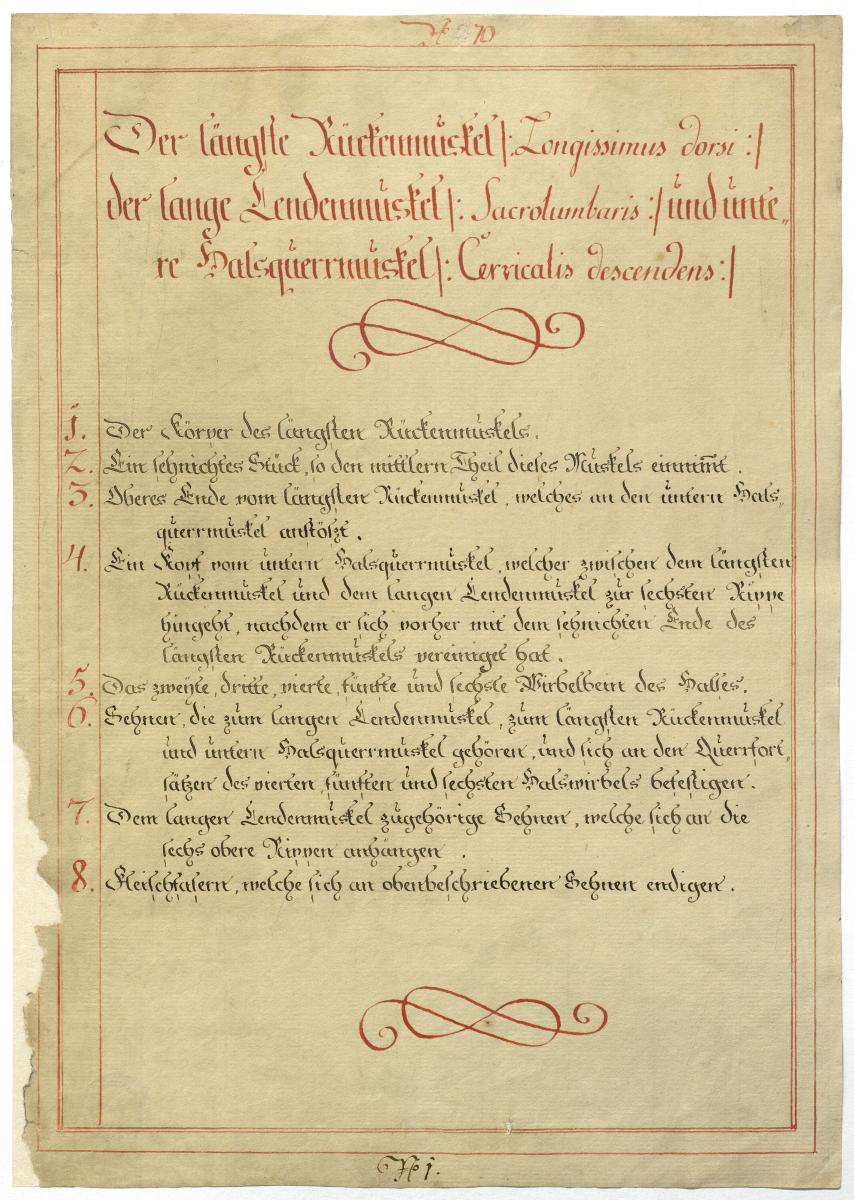 № 270
Der längste Rückenmuskel /: Longissimus dorsi :/
der lange Lendenmuskel /: Sacrolumbaris :/ und unte„
re Halsquerrmuskel /: Cervicalis descendens :/
1. Der Körper des längsten Rückenmuskels.
2. Ein sehnichtes Stück, so den mittlern Theil dieses Muskels einnim̅t.
3. Oberes Ende vom längsten Rückenmuskel, welches an den untern Hals„
querrmuskel anstößt.
4. Ein Kopf vom untern Halsquerrmuskel, welcher zwischen dem längsten
Rückenmuskel und dem langen Lendenmuskel zur sechsten Rippe
hingeht, nachdem er sich vorher mit dem sehnichten Ende des
längsten Rückenmuskels vereiniget hat.
5. Das zweyte, dritte, vierte, fünfte und sechste Wirbelbein des Halses.
6. Sehnen, die zum langen Lendenmuskel, zum längsten Rückenmuskel
und untern Halsquerrmuskel gehören, und sich an den Querrfort„
sätzen des vierten, fünften und sechsten Halswirbels befestigen.
7. Dem langen Lendenmuskel zugehörige Sehnen, welche sich an die
sechs obere Rippen anhängen.
8. Fleischfasern, welche sich an obenbeschriebenen Sehnen endigen.
№ 1.